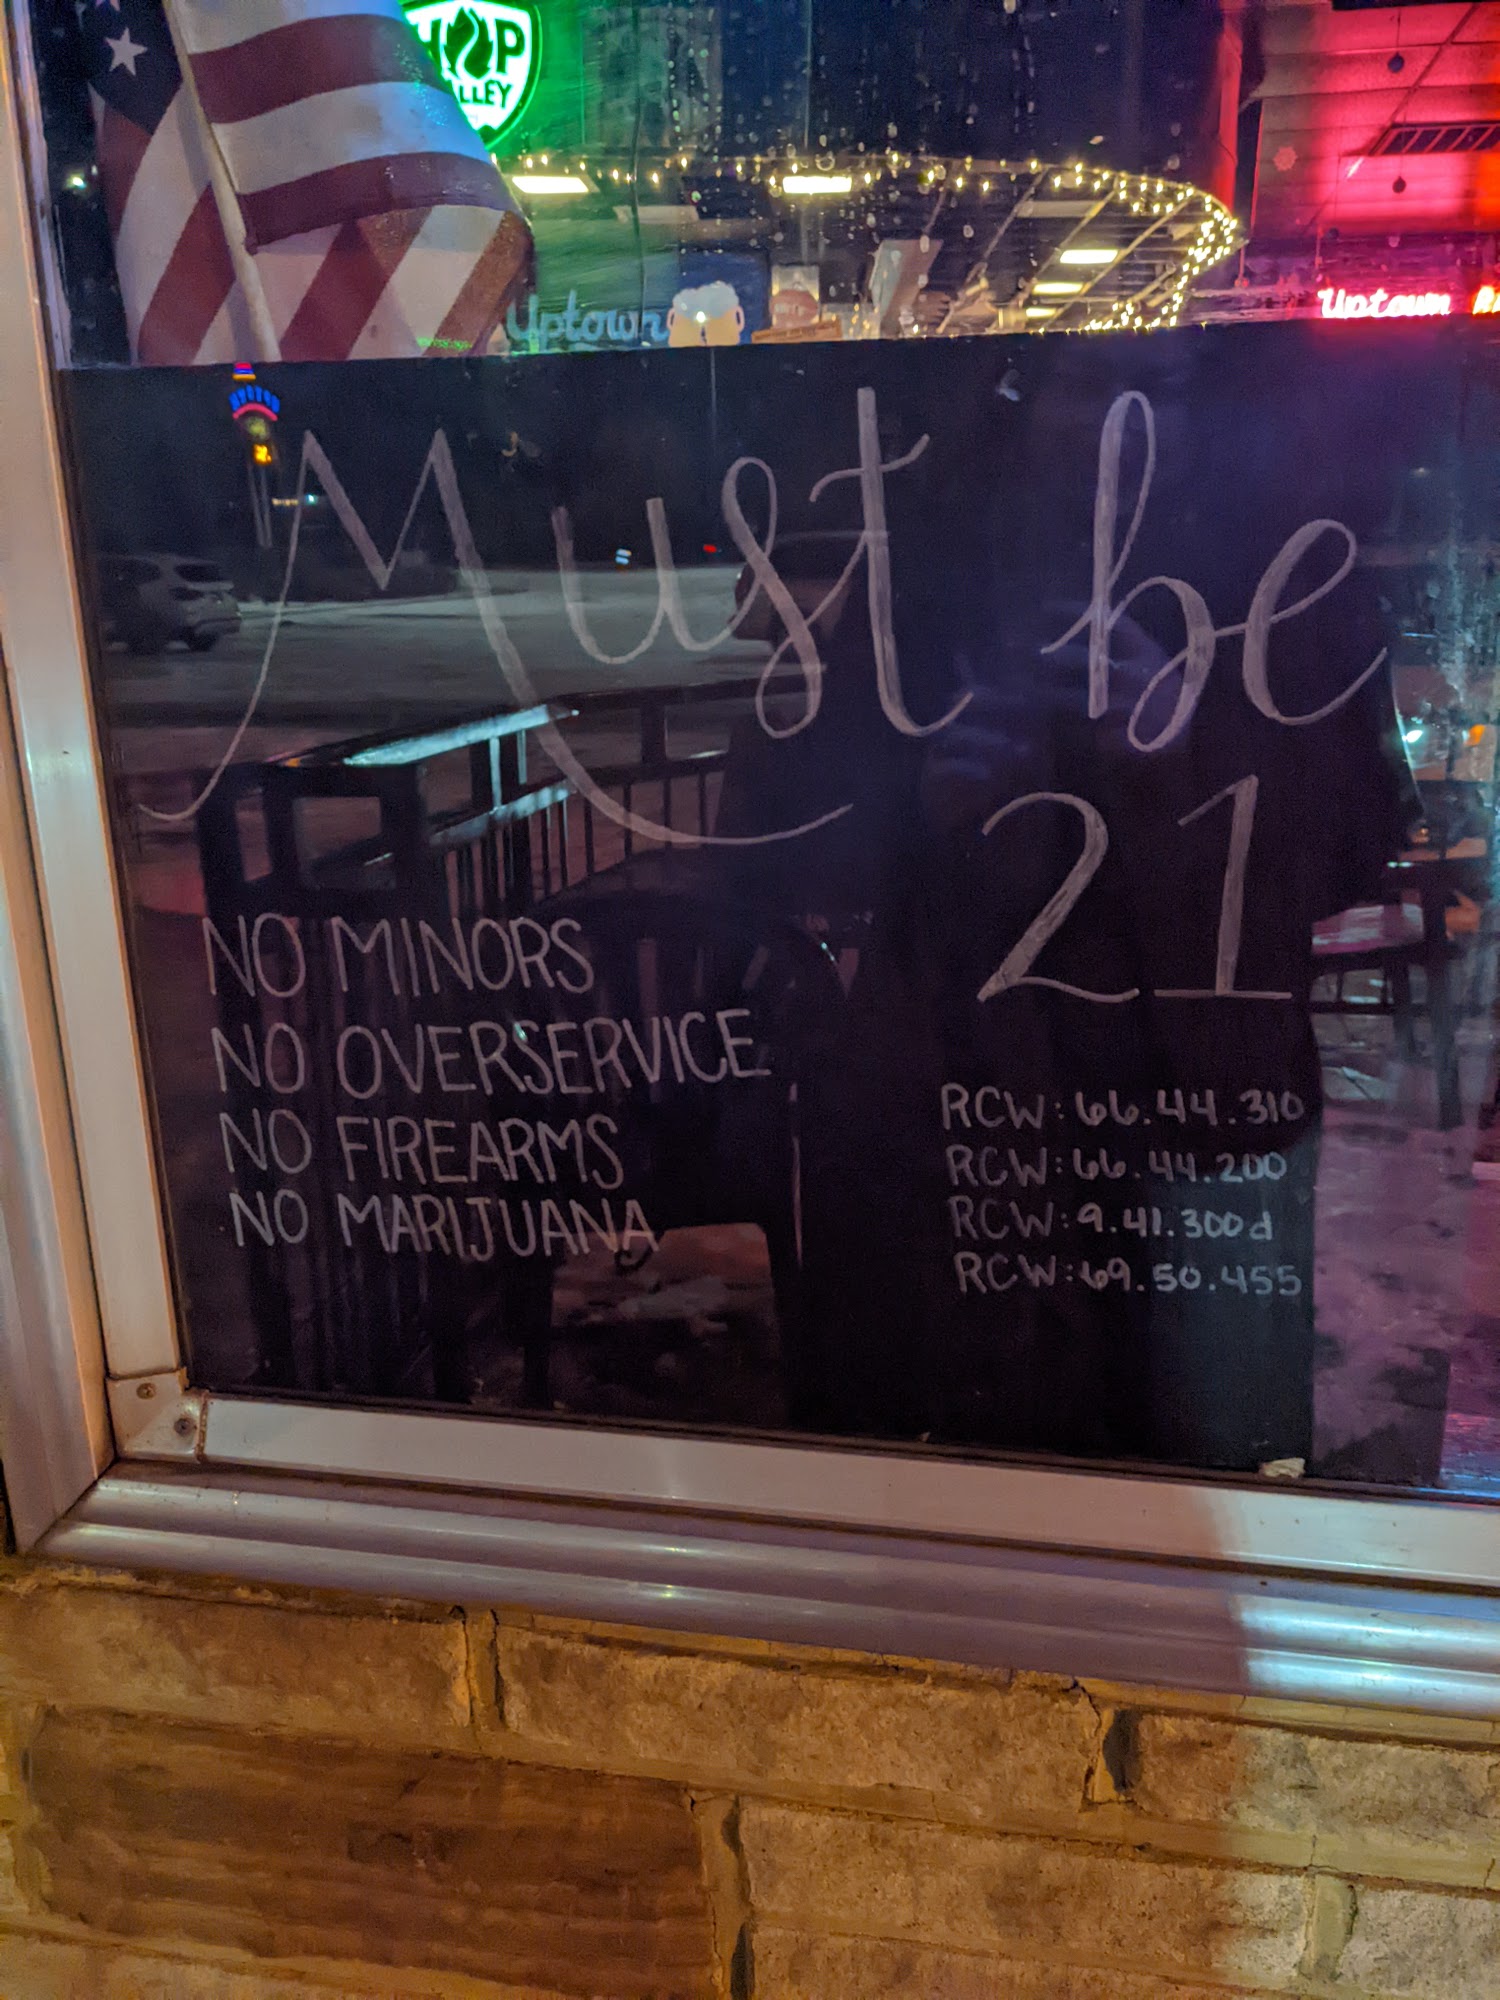 HOP
LLEY
Uptown
Uptown
Must be
21
NO MINORS
NO OVERSERVICE
NO FIREARMS
NO MARIJUANA
RCW: 66.44.310
RCW: 66.44.200
RCW: 9.41.300d
RCW: 69.50.455